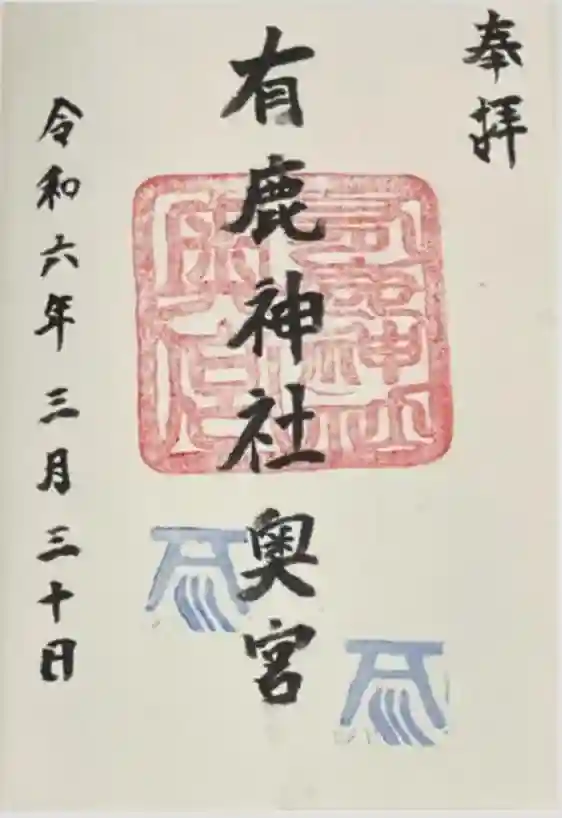 奉拝
有鹿神社奥宮
令和六年三月三十日